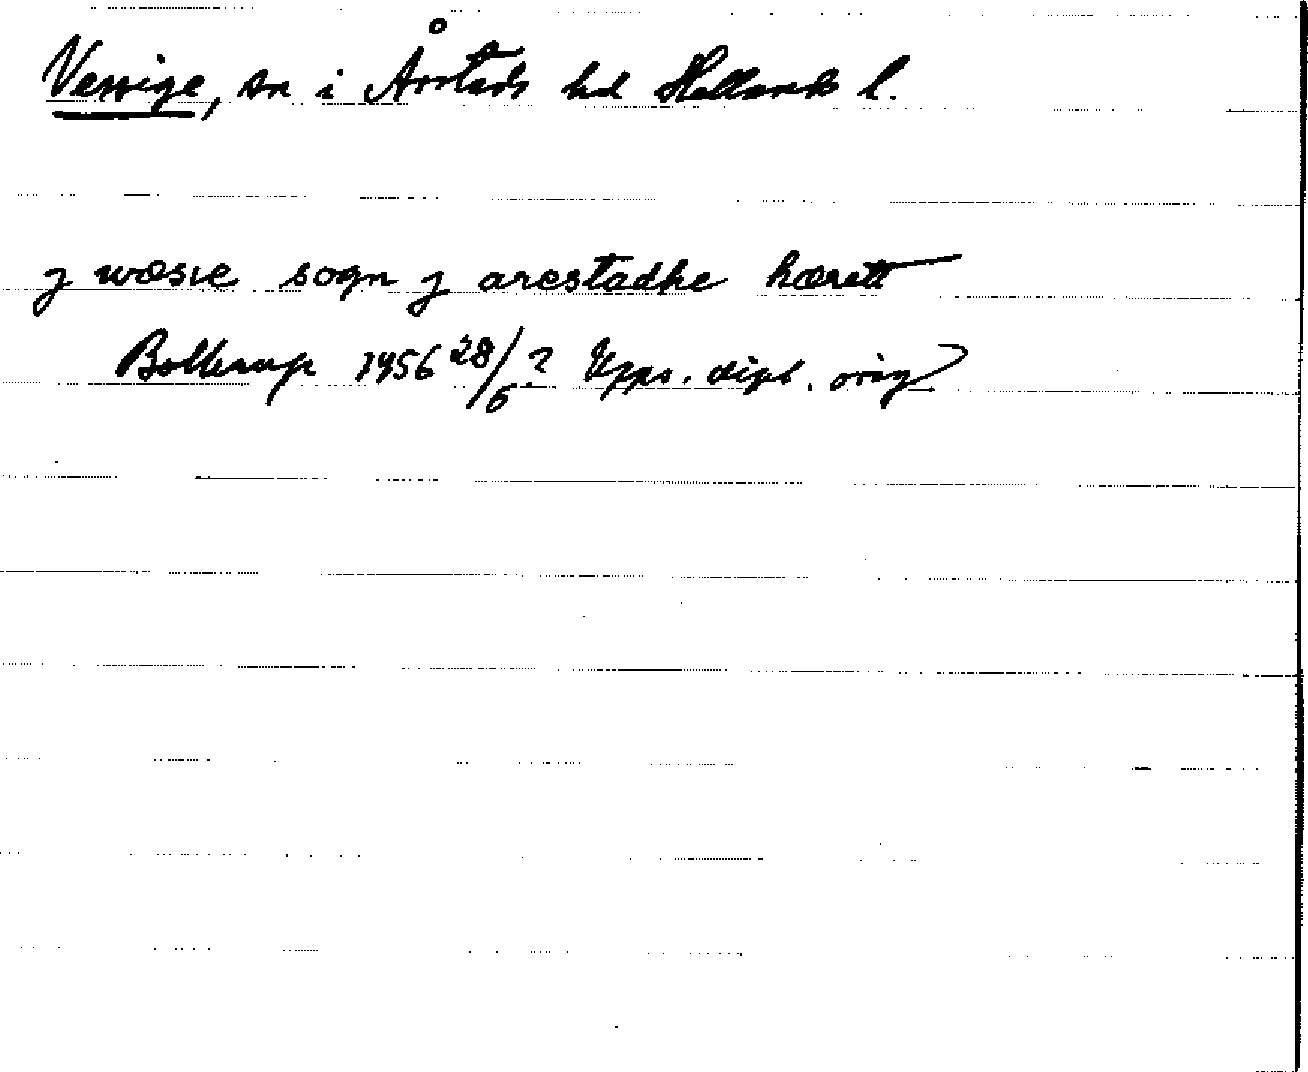 Vessige, sn i Årstads hd Hallands l.
j wæsie sogn j arestadhe hærett
Bollerup 1456 28/6? Upps. dipl. orig